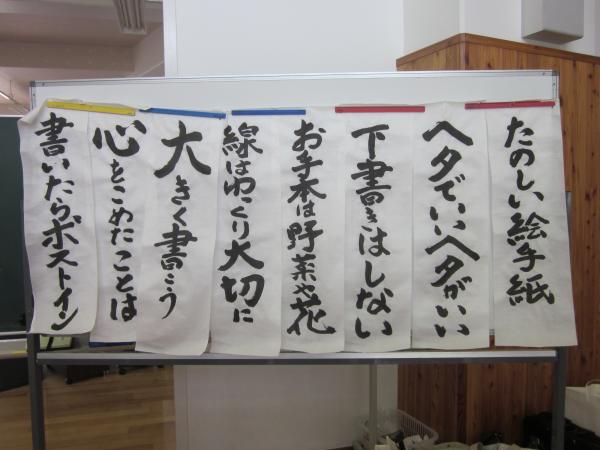 たのしい絵手紙
ヘタでいいヘタがいい
下書きはしない
お手本は野菜や花
線はゆっくり大切に
大きく書こう
心をこめたことば
書いたらポストイン